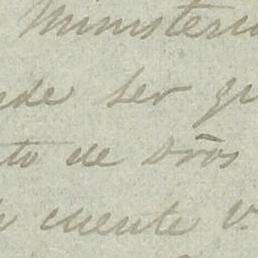 Ministerio
nde ser qu
to de Dños
cuente v.